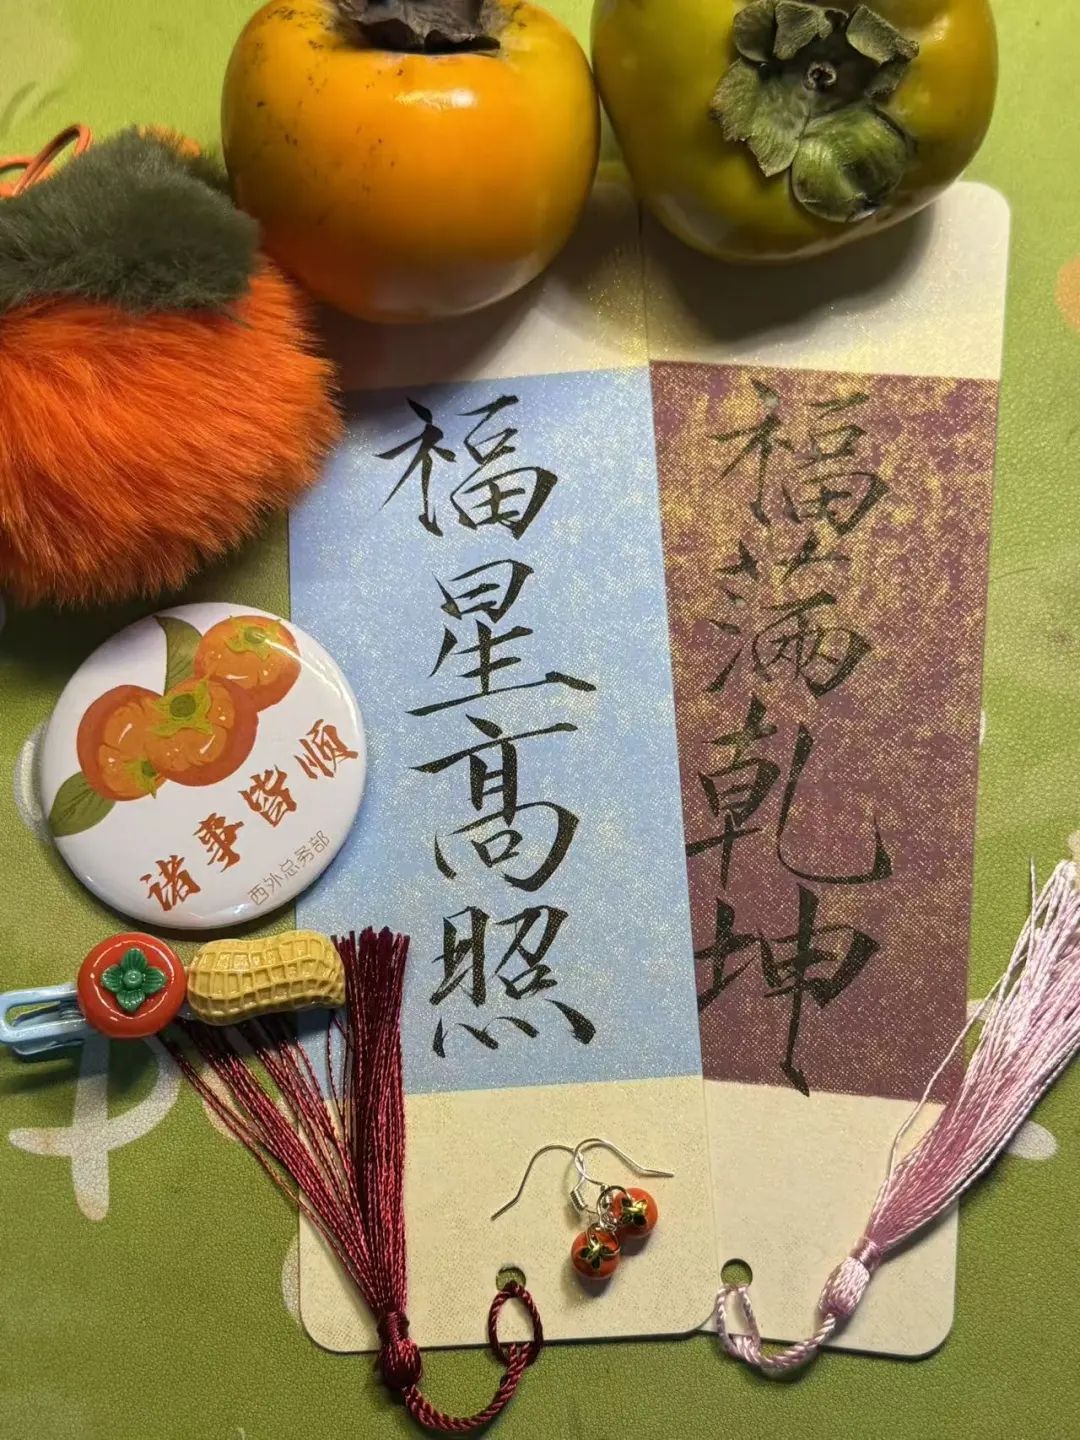 福星高照
福满乾坤
诸事皆顺
西外总务部